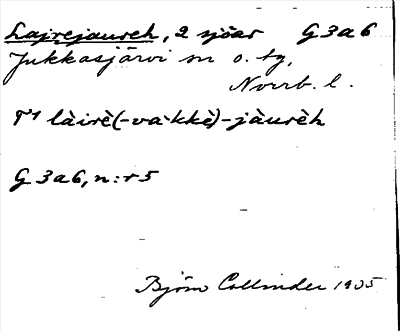 Lajrejaureh, 2 sjöar G 3 a 6
Jukkasjärvi sn o. tg,
Norrb. l.
T1 làirè(-và·kkè)-jàurèh
G 3 a 6, n:r 5
Björn Collinder 1935